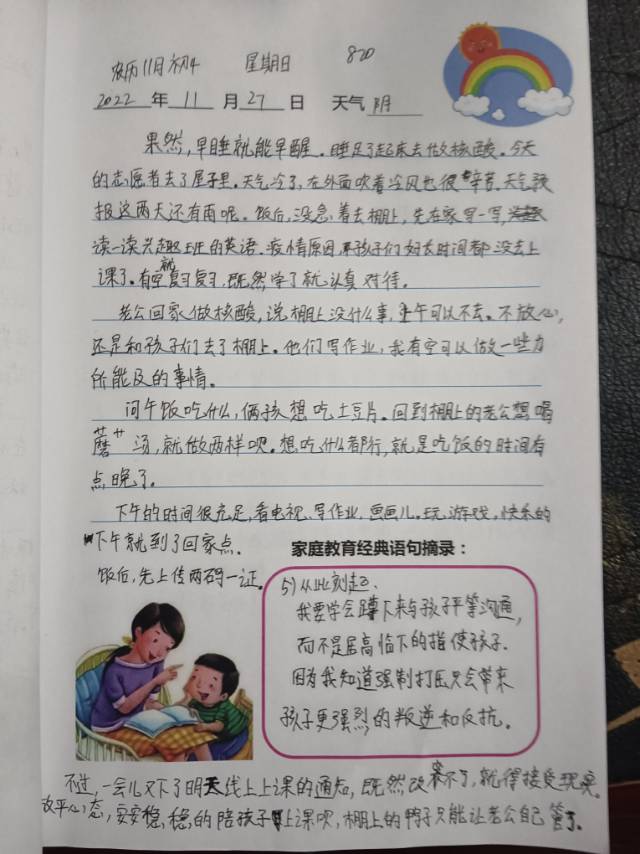 农历11月初4 星期日 820
2022年11月27日 天气阴
果然,早睡就能早醒。睡足了起床去做核酸。今天
的志愿者去了屋子里。天气冷了,在外面吹着冷风也很辛苦。天气预
报这两天还有雨呢。饭后,没急着去棚上,先在家写一写,
读一读兴趣班的英语。疫情原因,孩子们好长时间都没去上
课了。有空就复习复习,既然学了就认真对待。
老公回家做核酸,说棚上没什么事,上午可以不去。不放心,
还是和孩子们去了棚上。他们写作业,我有空可以做一些力
所能及的事情。
问午饭吃什么,俩孩想吃土豆片。回到棚上的老公想喝
蘑++汤,就做两样呗。想吃什么都行,就是吃饭的时间有
点晚了。
下午的时间很充足,看电视、写作业、画画儿、玩游戏,快乐的
下午就到了回家点。
饭后,先上传两码一证。
家庭教育经典语句摘录:
5)从此刻起、
我要学会蹲下来与孩子平等沟通,
而不是居高临下的指使孩子.
因为我知道强制打压只会带来
孩子更强烈的叛逆和反抗。
不过,一会儿又下了明天线上上课的通知,既然改变不了,就得接受现实。
放平心态,安安稳稳的陪孩子上课呗,棚上的鸭子只能让老公自己管了。